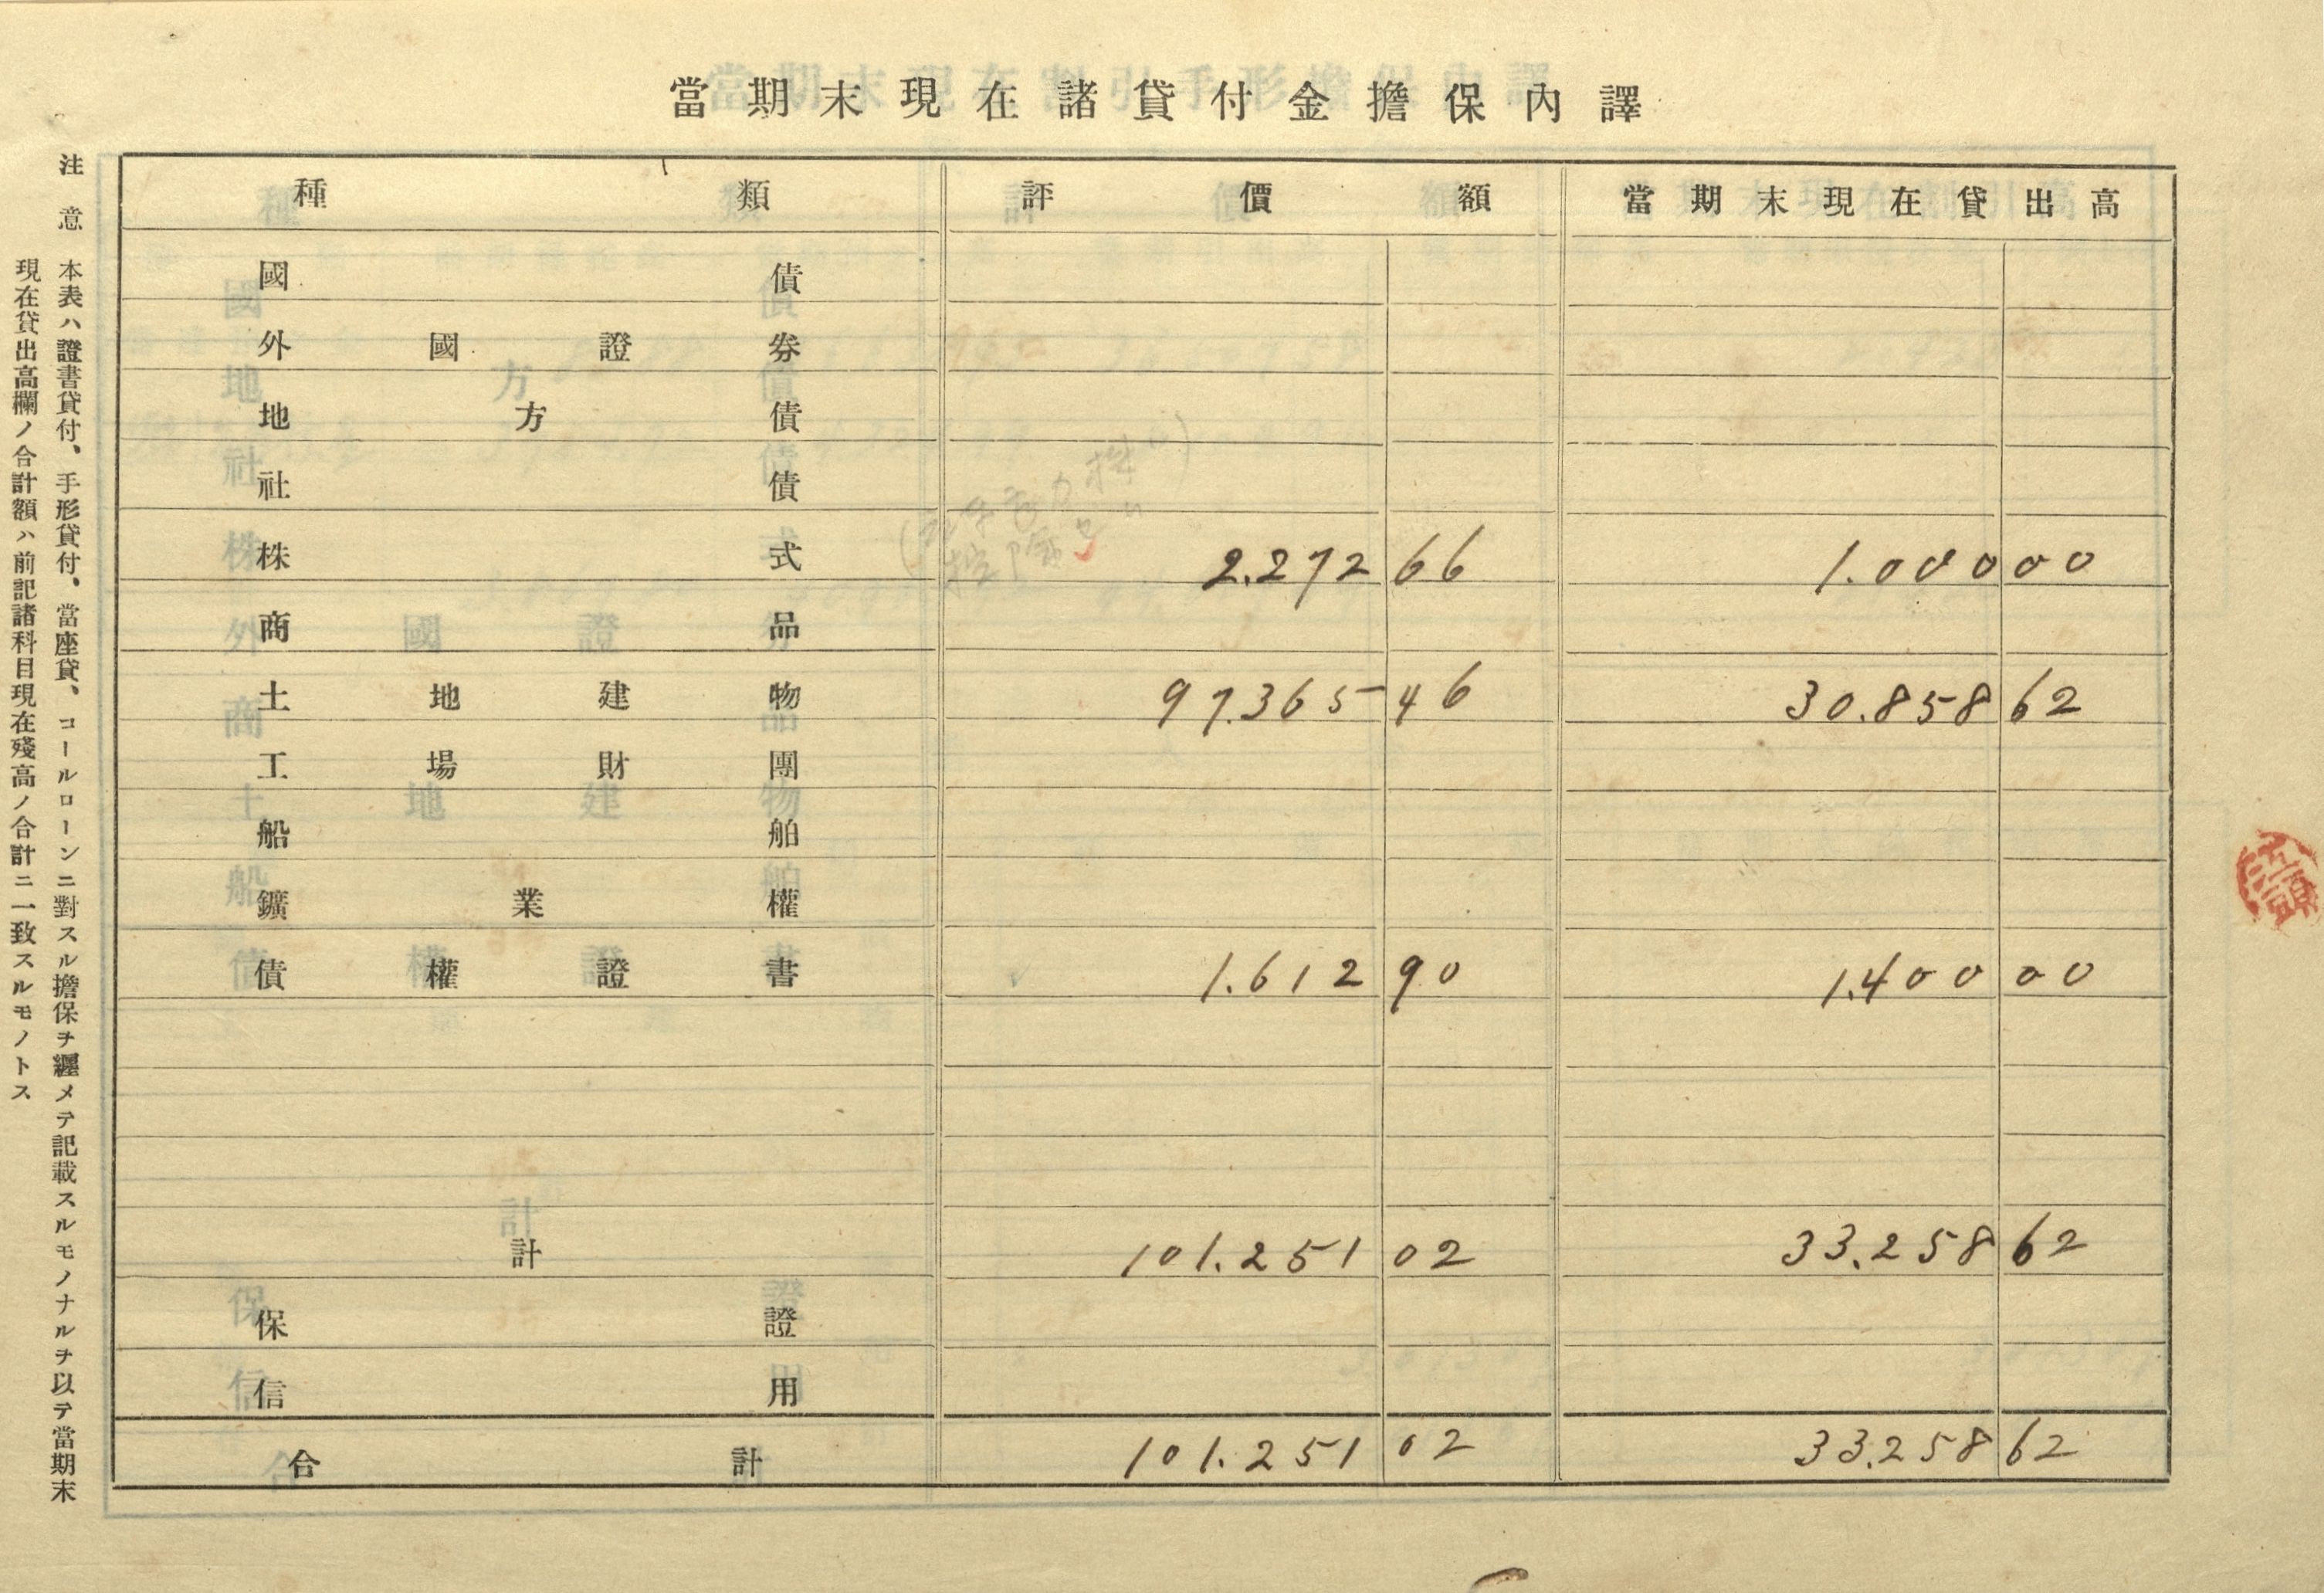 當期末現在諸貸付金擔保内譯
種類 評價額 當期末現在貸出高
國債
外國證券
地方債
社債
株式 2.272 66 1.000 00
商品
土地建物 97.365 46 30.858 62
工場財團
船舶
鑛業權
債權證書 1.612 90 1.400 00
計 101.251 02 33.258 62
保證
信用
合計 101.251 02 33.258 62
注意 本表ハ證書貸付、手形貸付、當座貸、コールローンニ對スル擔保ヲ纒メテ記載スルモノナルヲ以テ當期末
現在貸出高欄ノ合計額ハ前記諸科目現在殘高ノ合計ニ一致スルモノトス